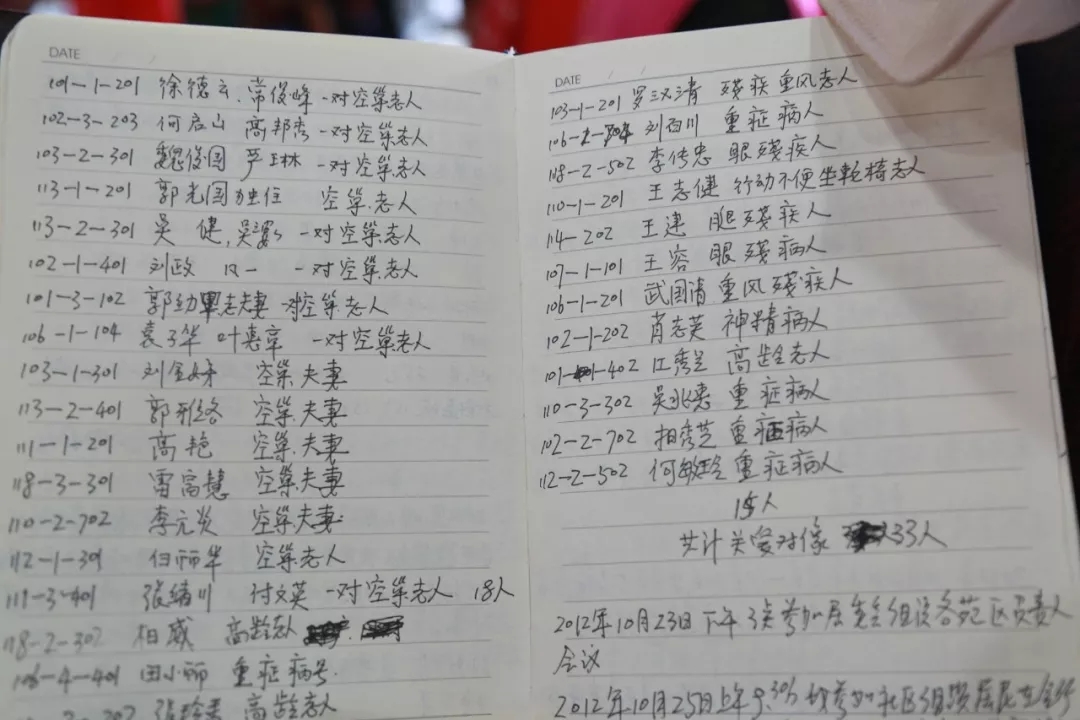 DATE
101-1-201 徐德云、常俊峰 一对空巢老人
102-3-203 何启山 高邦秀 一对空巢老人
103-2-301 魏俊国 严玉林 一对空巢老人
113-1-201 郭光国独住 空巢老人
113-2-301 吴健, 一对空巢老人
102-1-401 刘政 一对空巢老人
101-3-102 郭幼 老夫妻 一对空巢老人
106-1-104 袁子华 叶惠章 一对空巢老人
103-1-301 刘金 空巢夫妻
113-2-401 郭雅 空巢夫妻
111-1-201 高艳 空巢夫妻
118-3-301 雷富慧 空巢夫妻
110-2-702 李元炎 空巢夫妻
112-1-301 何丽华 空巢老人
111-3-401 张绪川 付文英 一对空巢老人 18人
118-2-302 柏威 高龄老人
106-4-401 田小丽 重症病号
高龄老人
DATE
103-1-201 罗汉清 残疾重风老人
刘百川 重症病人
118-2-502 李传忠 眼残疾人
110-1-201 王志健 行动不便坐轮椅老人
114-202 王建 腿残疾人
107-1-101 王容 眼残病人
106-1-201 武国清 重风残疾人
102-1-202 肖志英 神精病人
402 江秀兰 高龄老人
110-3-302 吴兆惠 重症病人
102-2-702 柏秀芝 重症病人
112-2-502 何敏玲 重症病人
15人
共计关爱对像 33人
2012年10月23日下午3点参加居委会组织各苑区负责人
会议
2012年10月25日上午9:30分 参加社区组织居民